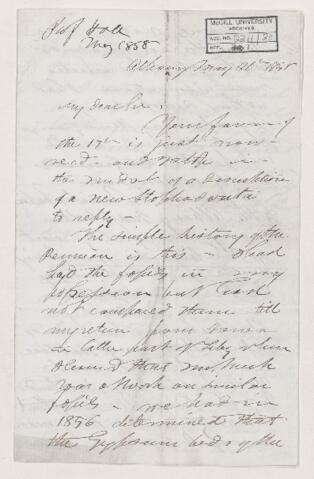 Prof Hall
May 1858
McGILL UNIVERSITY
ARCHIVES
ACC. NO.
REF.
Albany May 21st 1858
My dear Sir,
Your favor of
the 17th is just now
read - and I stop in
the midst of a description
of a new
to reply -
The simple history of the
Permian is this - I had
had the fossils in my
possession but had
not compared them till
my return from
in latter part of Feby where
I learned that Mr Meek
was at work on similar
fossils - we had in
1856 determined that
the Gypsum beds of the